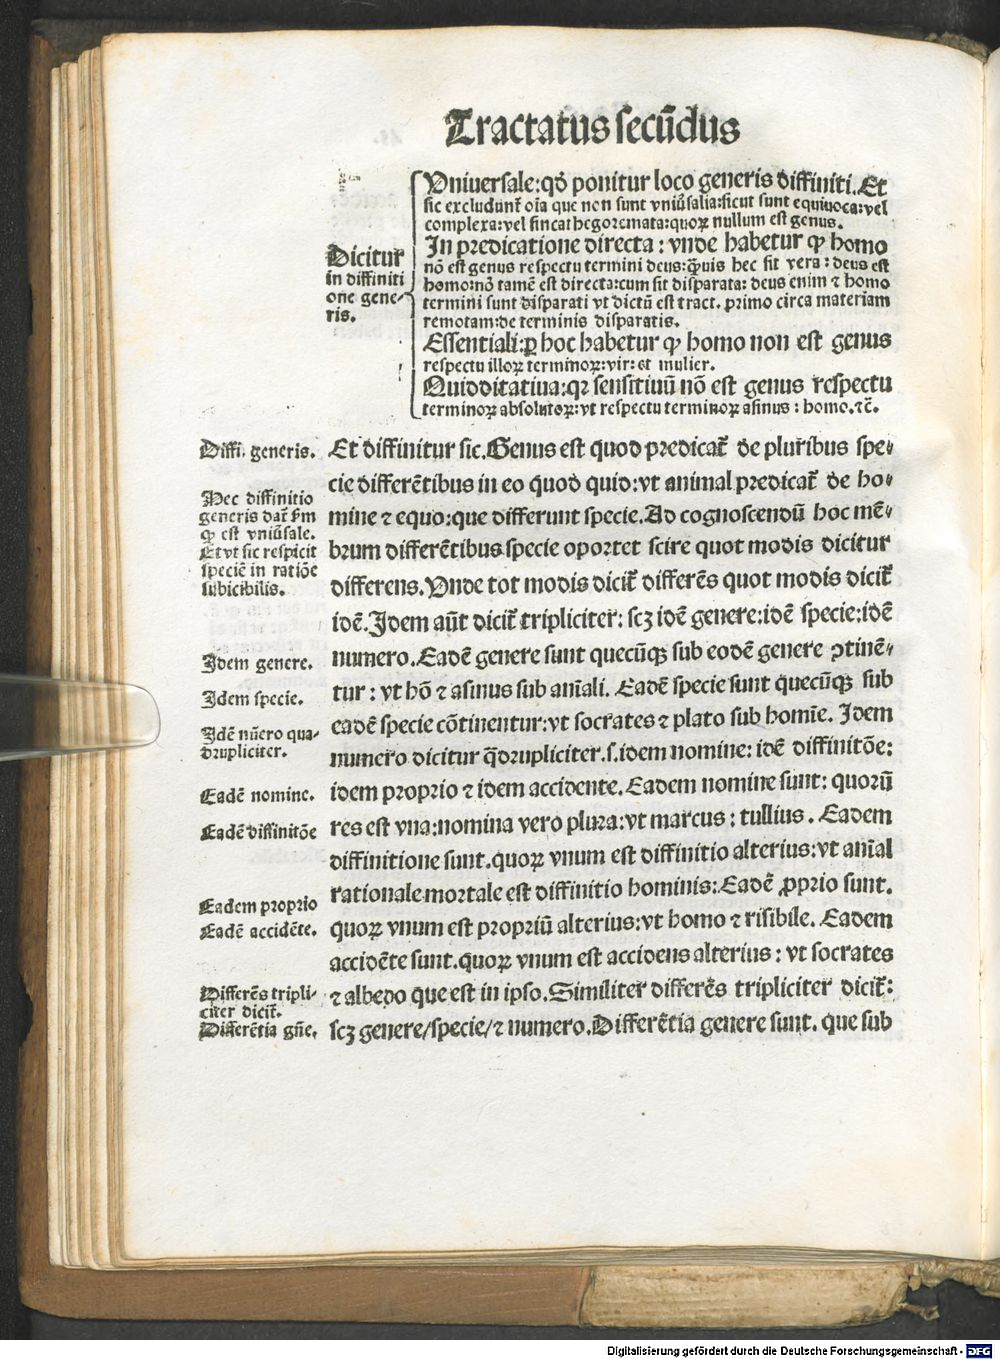 Tractatus secūdus
Dicitur
in diffiniti
one gene-
ris.
Uniuersale: qđ ponitur loco generis diffiniti. Et
sic excludunt̄ oīa que non sunt vniūsalia: sicut sunt equiuoca: vel
complexa: vel sincathegoremata: quoꝝ nullum est genus.
In predicatione directa: vnde habetur ꝙ homo
nō est genus respectu termini deus: q̄uis hec sit vera: deus est
homo: nō tamē est directa: cum sit disparata: deus enim ⁊ homo
termini sunt disparati vt dictū est tract. primo circa materiam
remotam: de terminis disparatis.
Essentiali: ꝑ hoc habetur ꝙ homo non est genus
respectu illoꝝ terminoꝝ: vir: et mulier.
Quidditatiua: qꝛ sensitiuū nō est genus respectu
terminoꝝ absolutoꝝ: vt respectu terminoꝝ asinus: homo. ⁊c̄.
Diffi. generis.
Et diffinitur sic. Genus est quod predicat̄ de pluribus spe-
cie differētibus in eo quod quid: vt animal predicat̄ de ho-
mine ⁊ equo: que differunt specie. Ad cognoscendū hoc mē-
brum differētibus specie oportet scire quot modis dicitur
differens. Unde tot modis dicit̄ differēs quot modis dicit̄
idē. Idem aūt dicit̄ tripliciter: scꝫ idē genere: idē specie: idē
numero. Eadē genere sunt quecūqꝫ sub eodē genere ꝯtinē-
tur: vt hō ⁊ asinus sub aīali. Eadē specie sunt quecūqꝫ sub
eadē specie cōtinentur: vt socrates ⁊ plato sub homīe. Idem
numero dicitur q̄drupliciter. s. idem nomine: idē diffinitōe:
idem proprio ⁊ idem accidente. Eadem nomine sunt: quorū
res est vna: nomina vero plura: vt marcus: tullius. Eadem
diffinitione sunt. quoꝝ vnum est diffinitio alterius: vt aīal
rationale mortale est diffinitio hominis: Eadē ꝓprio sunt.
quoꝝ vnum est propriū alterius: vt homo ⁊ risibile. Eadem
accidēte sunt. quoꝝ vnum est accidens alterius: vt socrates
⁊ albedo que est in ipso. Similiter differēs tripliciter dicit̄:
scꝫ genere/ specie/ ⁊ numero. Differētia genere sunt. que sub
Hec diffinitio
generis dat̄ ꝑm
ꝙ est vniūsale.
Et vt sic respicit
speciē in ratiōe
subicibilis.
Idem genere.
Idem specie.
Idē nūero qua-
drupliciter.
Eadē nomine.
Eadē diffinitōe
Eadem proprio
Eadē accidēte.
Differēs tripli-
citer dicit̄.
Differētia gn̄e.
Digitalisierung gefördert durch die Deutsche Forschungsgemeinschaft - DFG